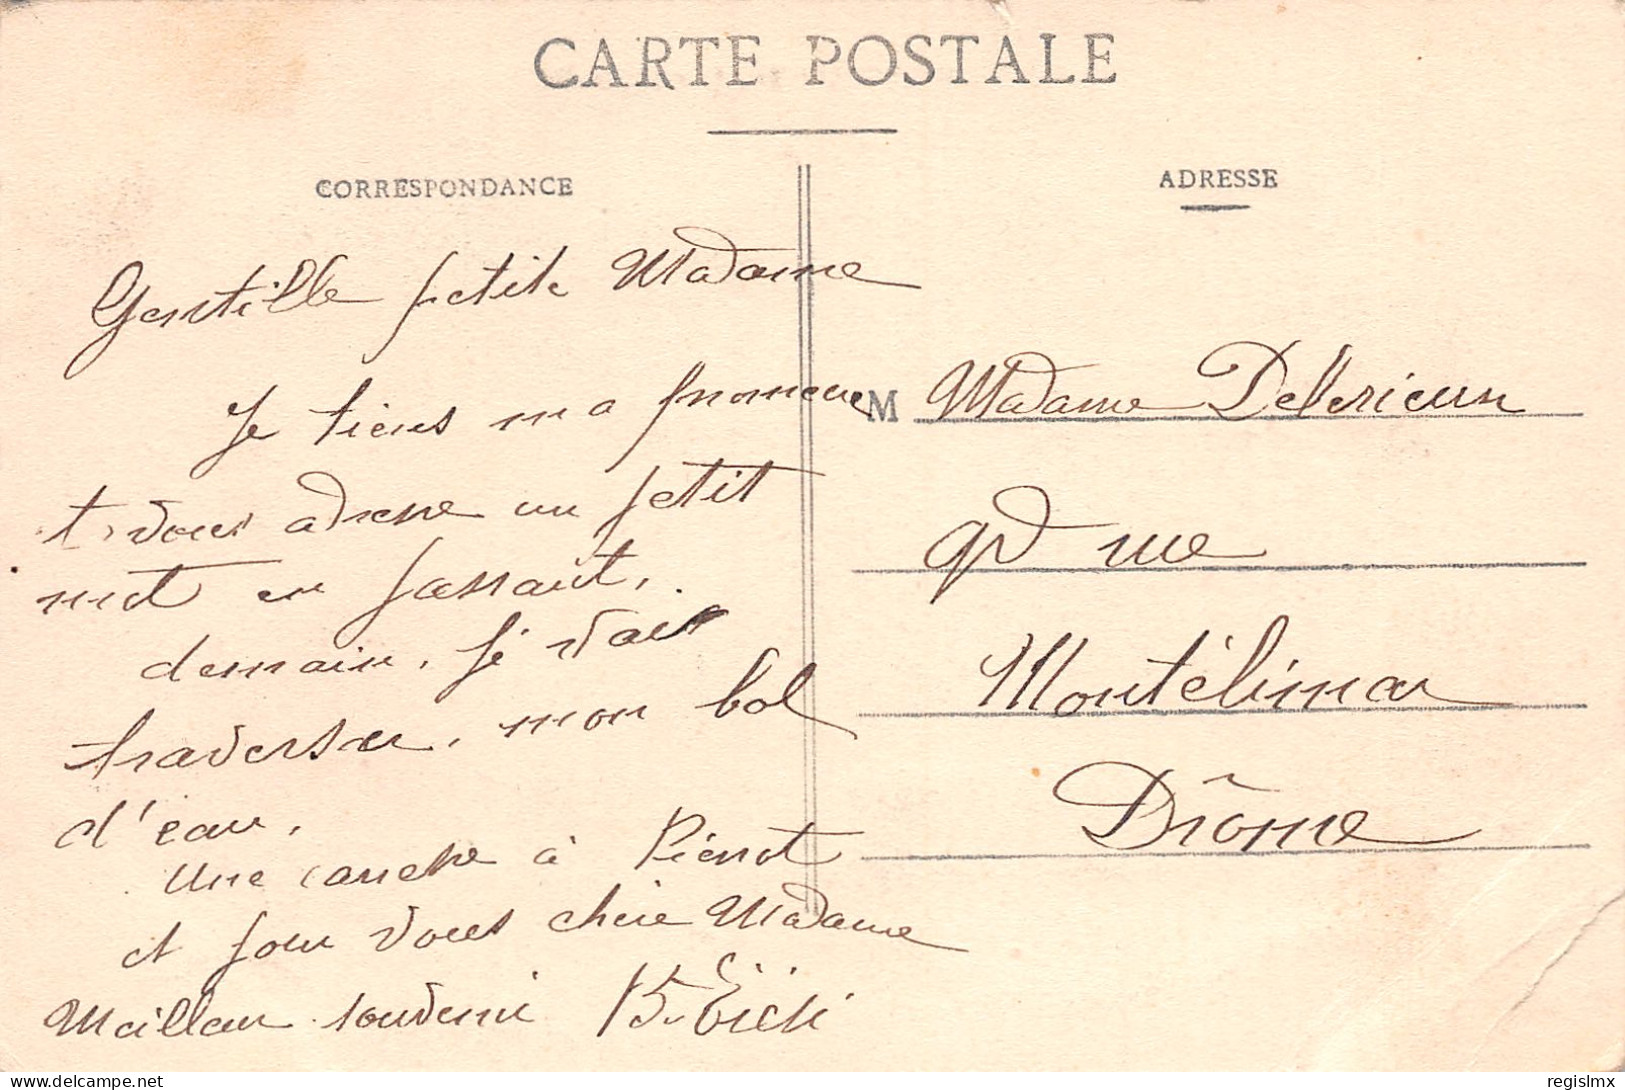 CARTE POSTALE
CORRESPONDANCE
ADRESSE
Gentille petite Madame
Je tiens ma promesse
et vous adresse un petit
mot en passant,
demain, je vais
traverser, mon bol
d'eau,
Une caresse à Pierrot
et pour vous chère Madame
Meilleur souvenir
M Madame
rue
Montélimar
Drôme
regislmx